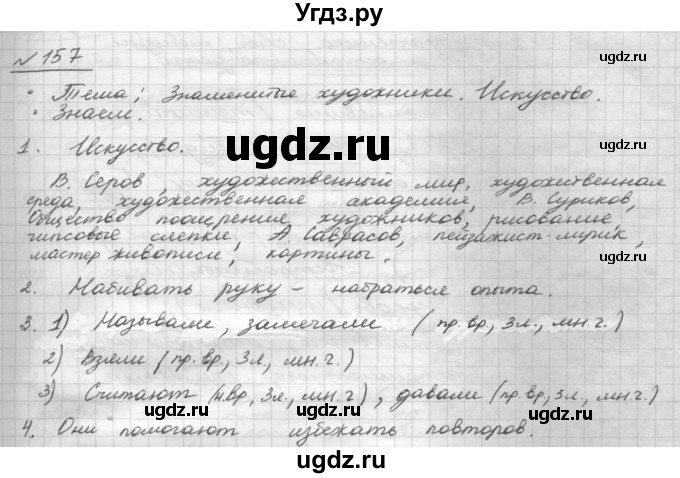 Угдз.ру
№ 157
• Тема: Знаменитые художники. Искусство.
• Знаем.
1. Искусство.
В. Серов, художественный мир, художественная
среда, художественная академия, В. Суриков,
Общество поощрения художников, рисование
гипсовые слепки, А Саврасов, пейзажист-лирик,
мастер живописи, картины.
2. Набивать руку – набраться опыта.
3. 1) Называли, замечали (пр. вр., 3 л., мн. ч.)
2) Взяли (пр. вр., 3 л., мн. ч.)
3) Считают (н. вр, 3 л., мн. ч.), давали (пр. вр., 3 л., мн. ч.)
4. Они помогают избежать повторов.
ugdz.ru
ugdz.ru
ugdz.ru
ugdz.ru
ugdz.ru
ugdz.ru
ugdz.ru
ugdz.ru